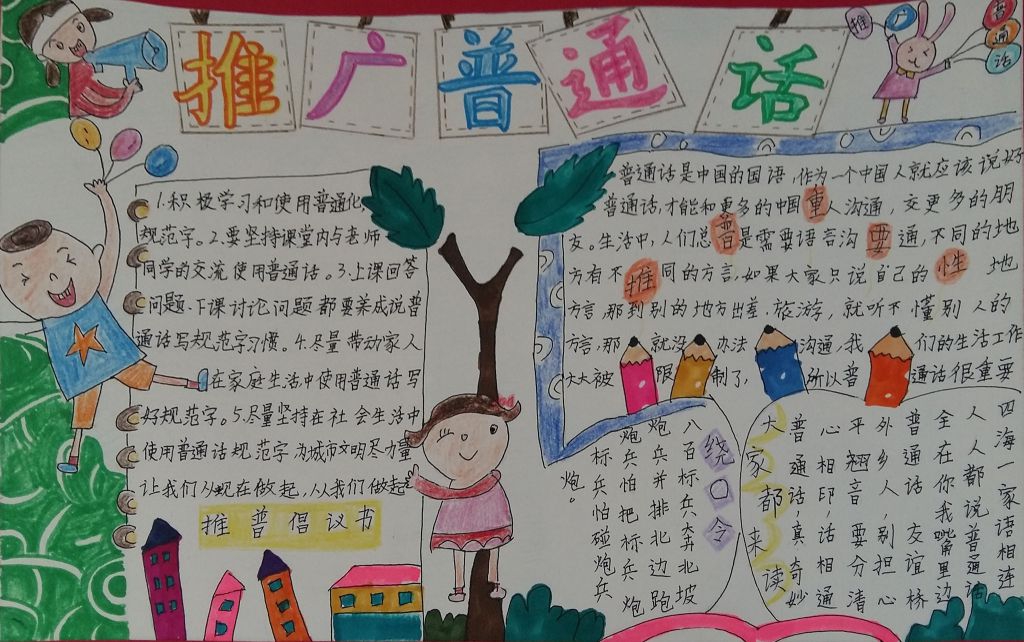 推广普通话
推 广 普 通 话
1.积极学习和使用普通化
规范字。2.要坚持课堂内与老师
同学的交流使用普通话。3.上课回答
问题、下课讨论问题都要养成说普
通话写规范字习惯。4.尽量带动家人
在家庭生活中使用普通话写
好规范字。5.尽量坚持在社会生活中
使用普通话规范字为城市文明尽力量
让我们从现在做起,从我们做起
推普倡议书
普通话是中国的国语,作为一个中国人就应该说好
普通话,才能和更多的中国重人沟通,交更多的朋
友。生活中,人们总普是需要语言沟要通,不同的地
方有不推同的方言,如果大家只说自己的性地
方言,那到别的地方出差、旅游,就听不懂别人的
方言,那就没办法沟通,我们的生活工作
大大被限制了,所以普通话很重要
绕口令
八百标兵奔北坡
炮兵并排北边跑
炮兵怕把标兵炮
标兵怕碰炮兵
炮。
四海一家语相连
人人都说普通话
全在你我嘴里边
普通话友谊桥
外乡人,别担心
平翘音要分清
心相印话相通
普通话,真奇妙
大家都来读